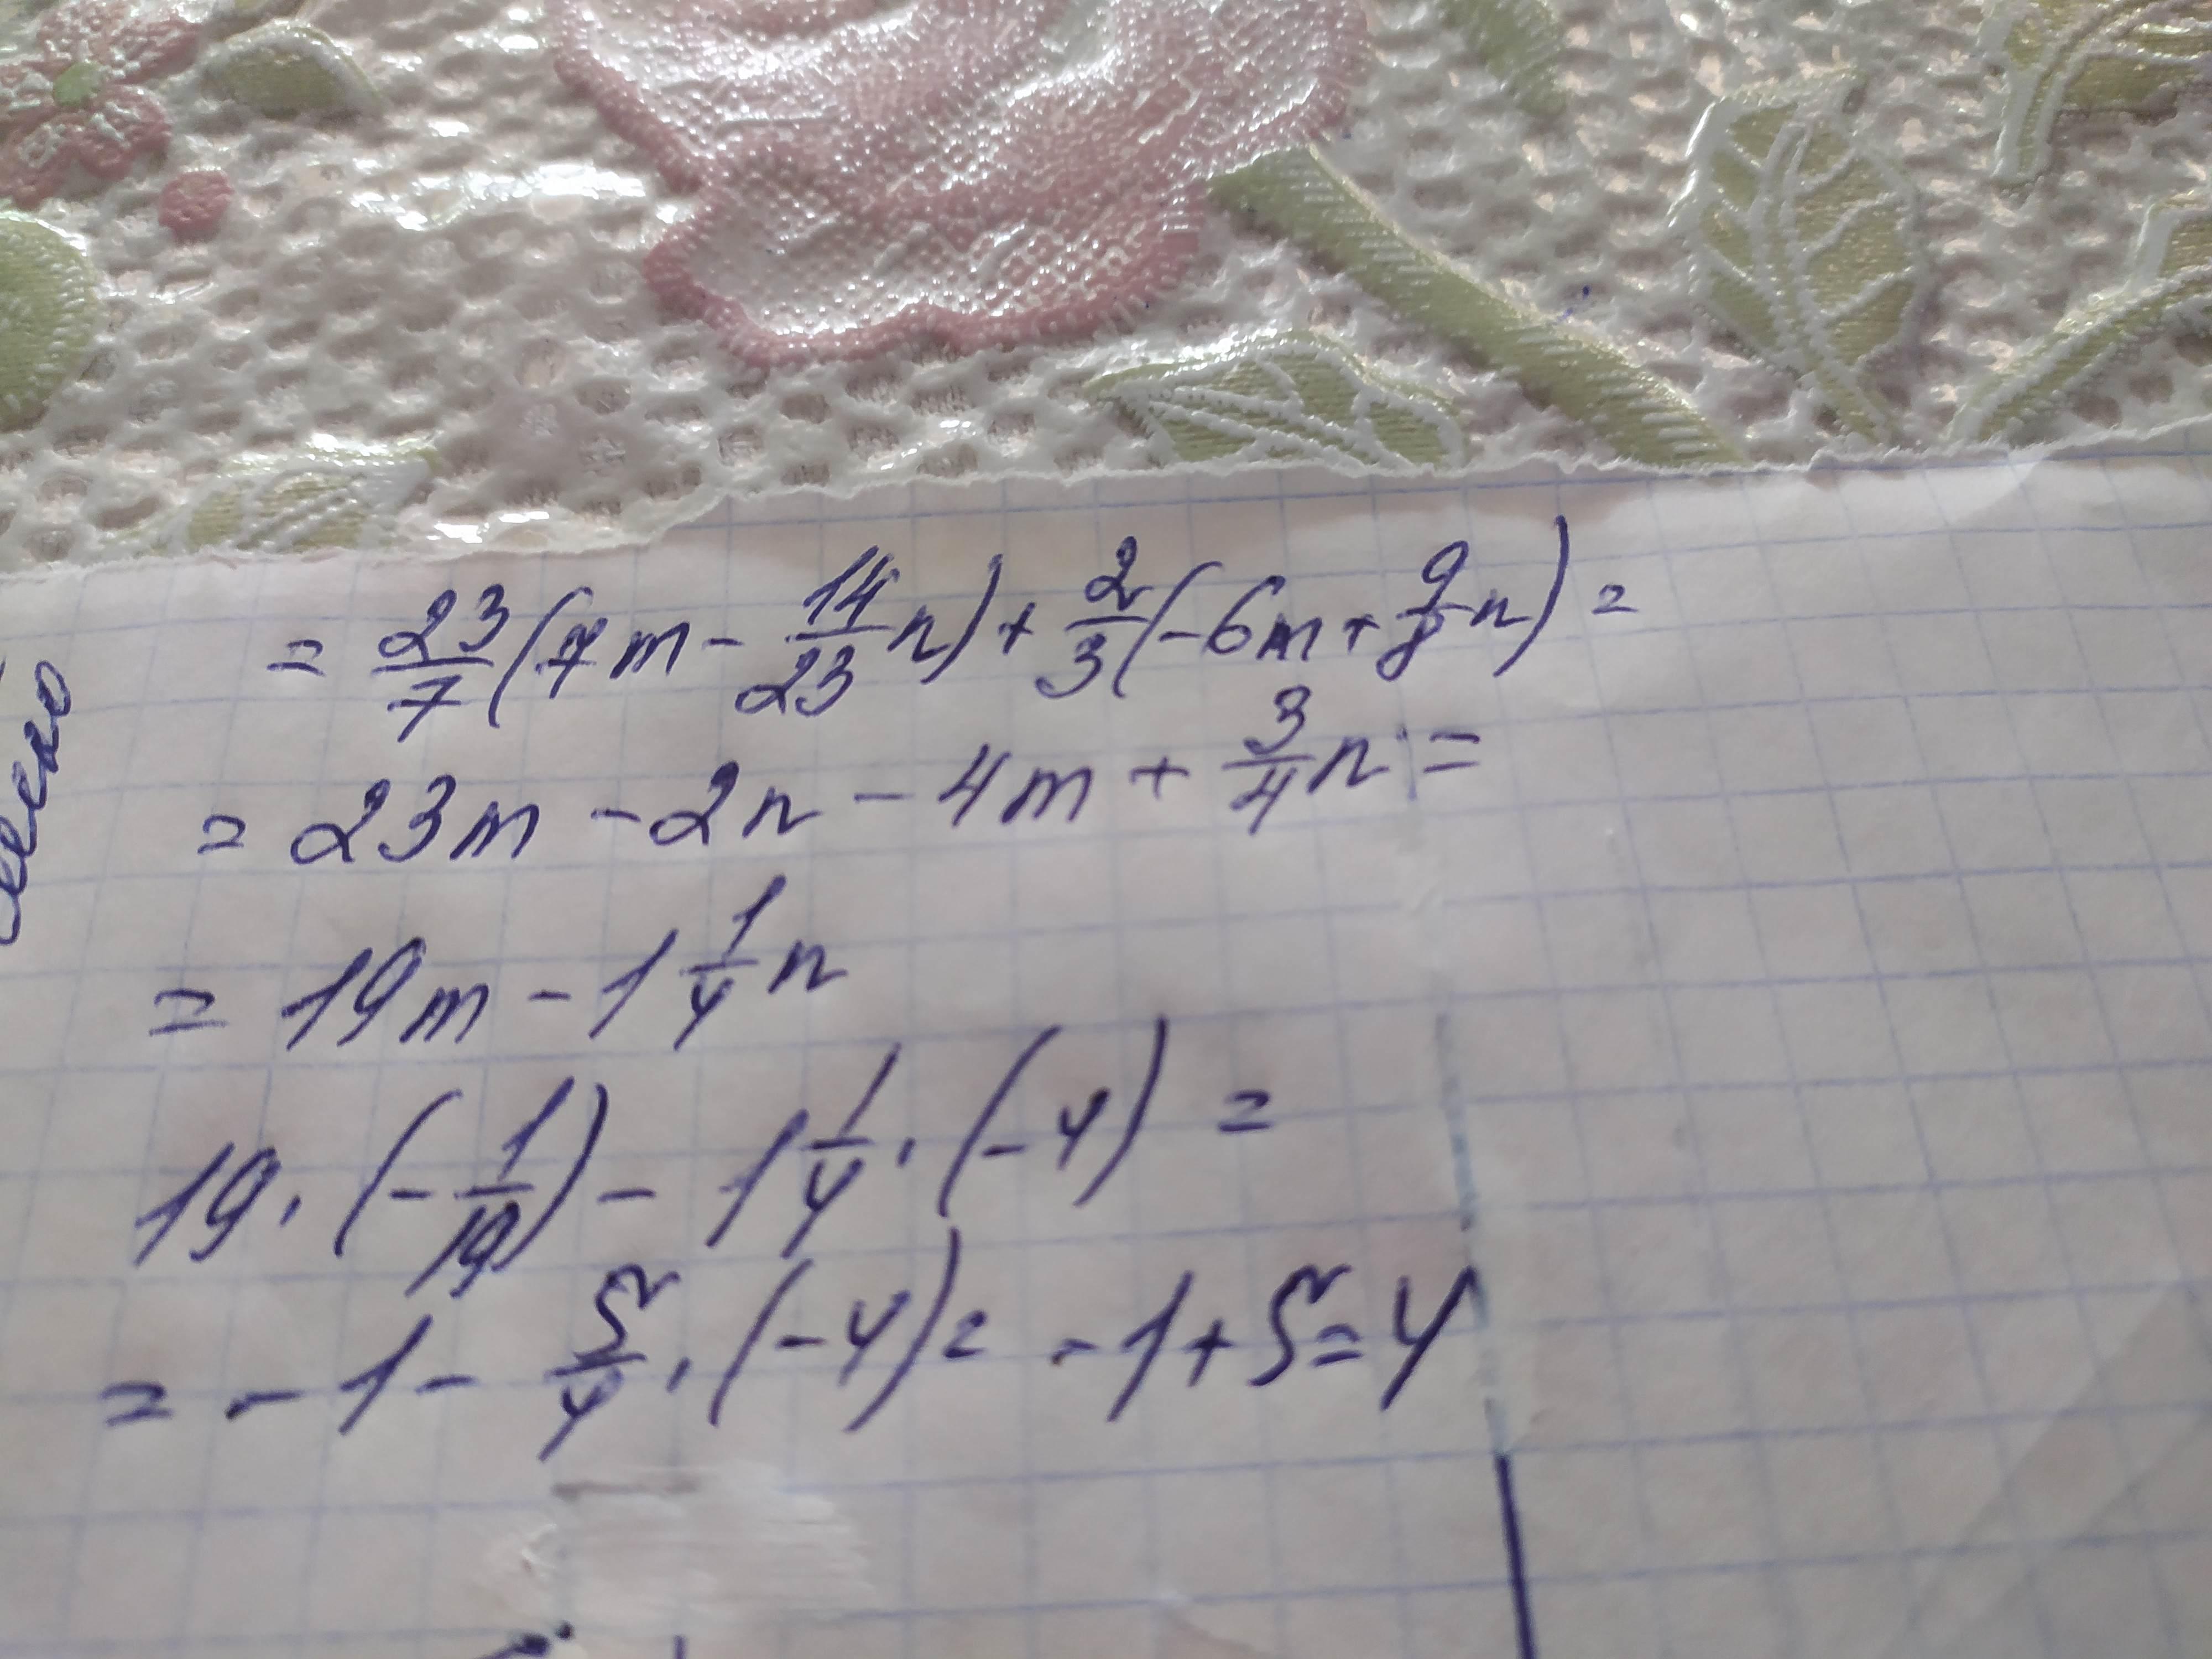 = 23/7 (7m - 14/23 n) + 2/3 (-6m + 9/8 n) =
= 23m - 2n - 4m + 3/4 n =
= 19m - 1 1/4 n
19 · (- 1/19) - 1 1/4 · (-4) =
= -1 - 5/4 · (-4) = -1 + 5 = 4